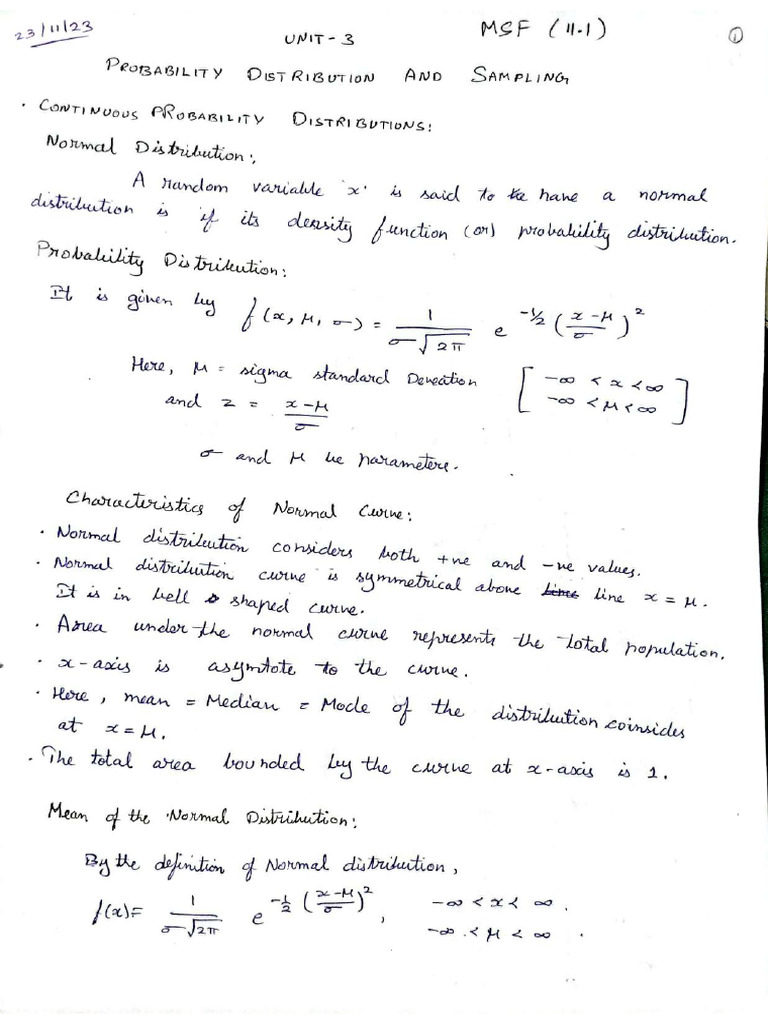 23/11/23
UNIT-3
MSF (11.1)
①
PROBABILITY DISTRIBUTION AND SAMPLING
• CONTINUOUS PROBABILITY DISTRIBUTIONS:
Normal Distribution:,
A random variable 'x' is said to be have a normal
distribution is if its density function (or) probability distribution.
Probability Distribution:
It is given by f(x, μ, σ) = 1/(σ√2π) e^-½((x-μ)/σ)²
Here, μ = sigma standard Deveation [-∞ < x < ∞
-∞ < μ < ∞]
and z = (x-μ)/σ
σ and μ be parameters.
Characteristics of Normal Curve:
• Normal distribution considers both +ve and -ve values.
• Normal distribution curve is symmetrical above line line x = μ.
It is in bell shaped curve.
• Area under the normal curve represents the total population.
• x-axis is asymtote to the curve.
• Here, mean = Median = Mode of the distribution coinsides
at x = μ.
• The total area bounded by the curve at x-axis is 1.
Mean of the Normal Distribution:
By the definition of Normal distribution,
f(x) = 1/(σ√2π) e^-½((x-μ)/σ)², -∞ < x < ∞.
-∞ < μ < ∞.